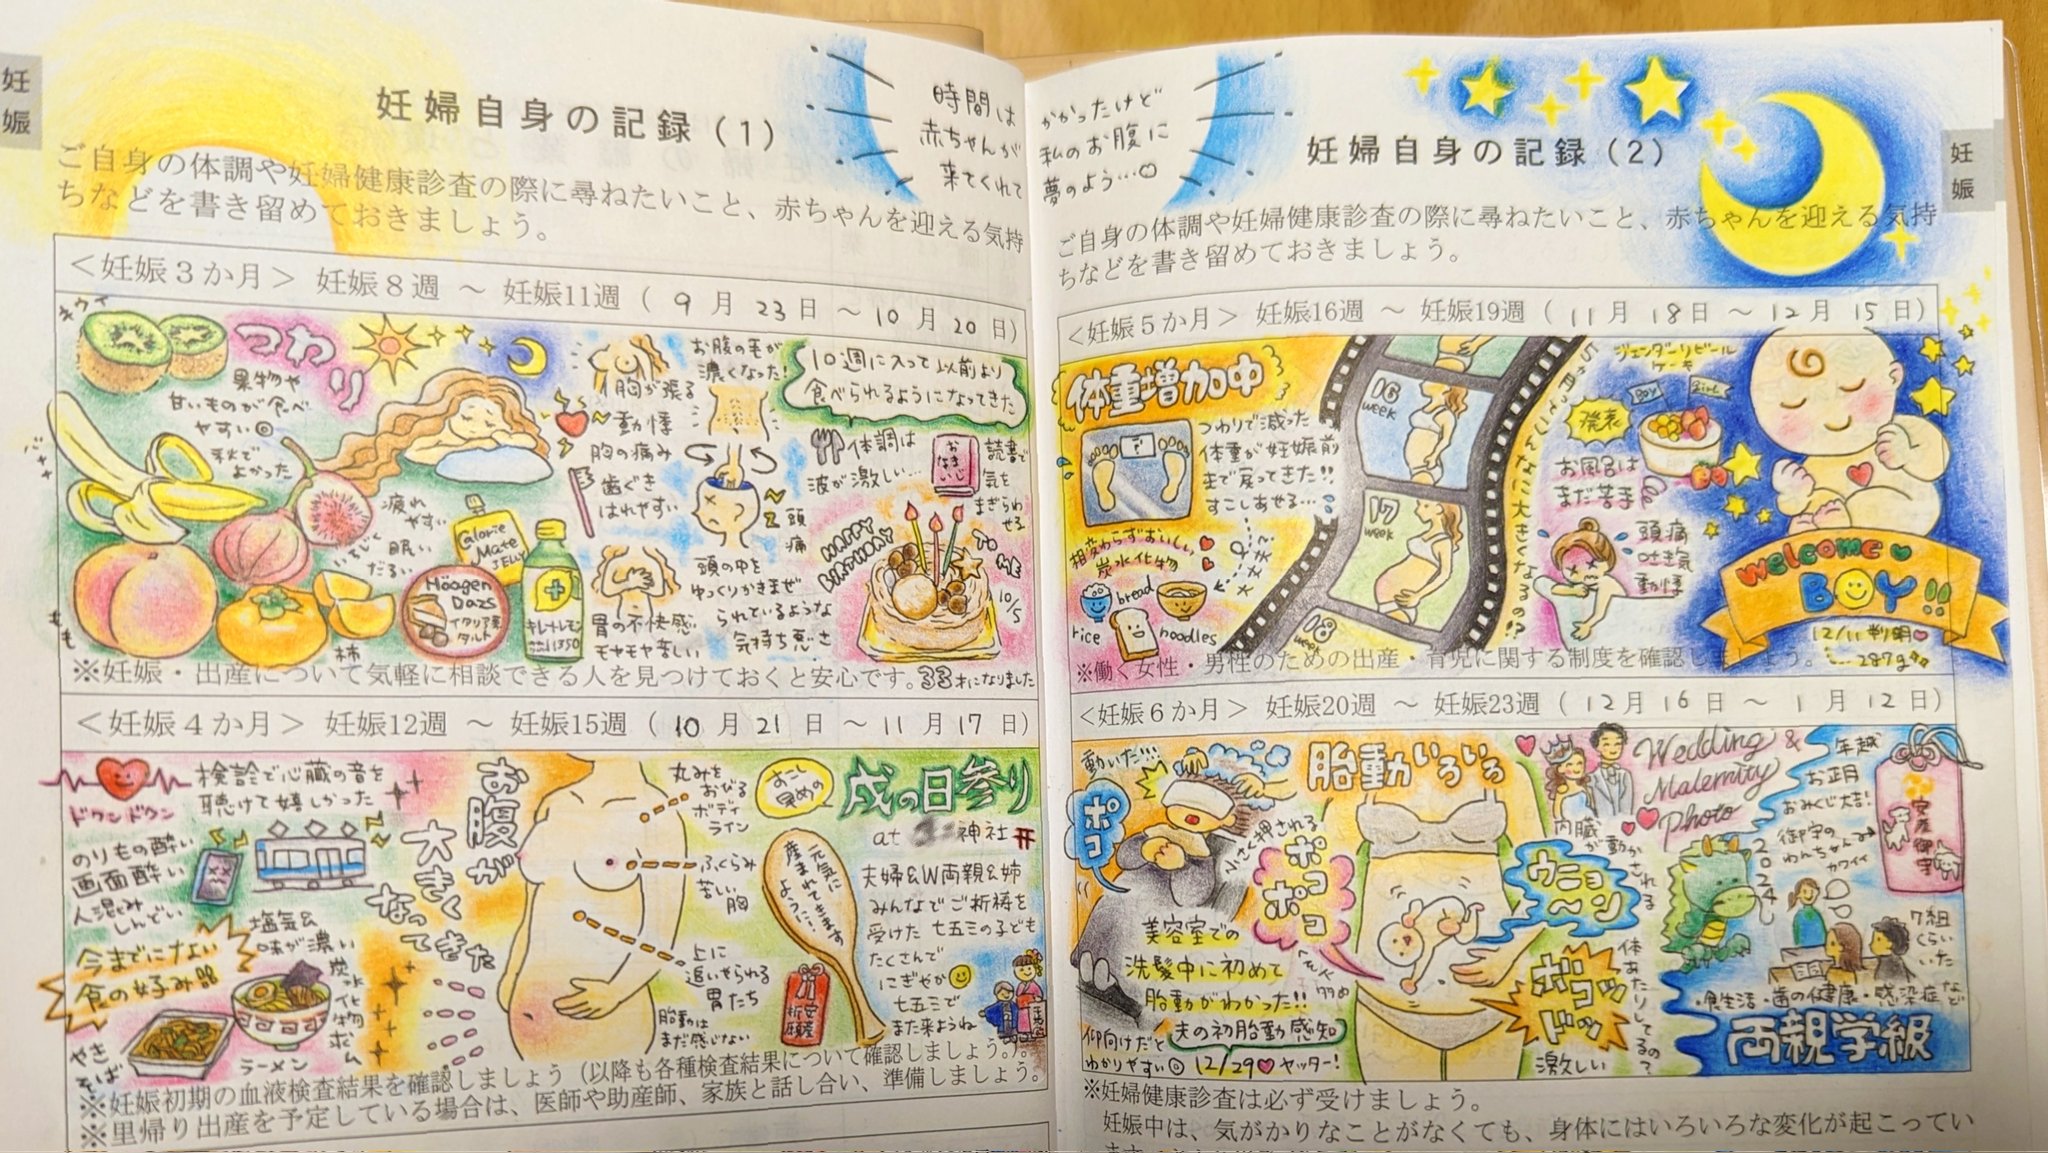 妊娠
妊婦自身の記録（1）
時間は
赤ちゃんが
来てくれて
ご自身の体調や妊婦健康診査の際に尋ねたいこと、赤ちゃんを迎える気持
ちなどを書き留めておきましょう。
＜妊娠３か月＞ 妊娠８週 ～ 妊娠11週（ 9 月 23 日 ～ 10 月 20 日）
キウイ
つわり
果物や
甘いものが食べ
やすい◎
秋で
よかった
疲れ
やすい
眠い
だるい
いちじく
もも
柿
Calorie
Mate
JELLY
Häagen
Dazs
イタリア栗
タルト
キレートレモン
1350
胸が張る
動悸
胸の痛み
歯ぐき
はれやすい
胃の不快感
モヤモヤ苦しい
お腹の毛が
濃くなった!
頭痛
頭の中を
ゆっくりかきまぜ
られているような
気持ち悪さ
10週に入って以前より
食べられるようになってきた
体調は
波が激しい…
読書で
気を
まぎらわ
せる
HAPPY
BIRTHDAY
TO ME
10/5
33才になりました
※妊娠・出産について気軽に相談できる人を見つけておくと安心です。
＜妊娠４か月＞ 妊娠12週 ～ 妊娠15週（ 10 月 21 日 ～ 11 月 17 日）
ドクンドクン
検診で心臓の音を
聴けて嬉しかった
のりもの酔い
画面酔い
人混みしんどい
今までにない
食の好み
塩気＆
味が濃い
炭水化物求ム
やきそば
ラーメン
お腹が
大きく
なってきた
丸みを
おびる
ボディ
ライン
ふくらみ
苦しい
胸
上に
追いせられる
胃たち
胎動は
まだ感じない
すこし
早めの
戌の日参り
at
神社
元気に
産まれてきますように…
安産
祈願
夫婦＆W両親＆姉
みんなでご祈祷を
受けた 七五三の子ども
たくさんで
にぎやか
七五三で
また来ようね
※妊娠初期の血液検査結果を確認しましょう（以降も各種検査結果について確認しましょう。）。
※里帰り出産を予定している場合は、医師や助産師、家族と話し合い、準備しましょう。
かかったけど
私のお腹に
夢のよう…♡
妊婦自身の記録（2）
妊娠
ご自身の体調や妊婦健康診査の際に尋ねたいこと、赤ちゃんを迎える気持
ちなどを書き留めておきましょう。
＜妊娠５か月＞ 妊娠16週 ～ 妊娠19週（ 11 月 18 日 ～ 12 月 15 日）
体重増加中
?
つわりで減った
体重が妊娠前
まで戻ってきた!!
すこしあせる…
相変わらずおいしい
炭水化物
rice
bread
noodles
16
week
17
week
18
week
ジェンダーリビール
ケーキ
BOY
Girl
発表
お風呂は
まだ苦手
頭痛
吐き気
動悸
Welcome
BOY!!
12/11 判明♡
287g
※働く女性・男性のための出産・育児に関する制度を確認しましょう。
＜妊娠６か月＞ 妊娠20週 ～ 妊娠23週（ 12 月 16 日 ～ 1 月 12 日）
動いた!!!
ポコ
美容室での
洗髪中に初めて
胎動がわかった!!
仰向けだと
わかりやすい◎
夫の初胎動感知
12/29♡ヤッター!
胎動いろいろ
小さく押される
ポコポコ
内臓が動かされる
ウニョ～ン
ボコッ
ドッ
体あたりしてるので
激しい
Wedding &
Maternity
Photo
年越
お正月
おみくじ大吉!
御守の
わんちゃん
カワイイ
安産御守
2024
7組
くらい
いた
・食生活・歯の健康・感染症など
両親学級
※妊婦健康診査は必ず受けましょう。
妊娠中は、気がかりなことがなくても、身体にはいろいろな変化が起こってい